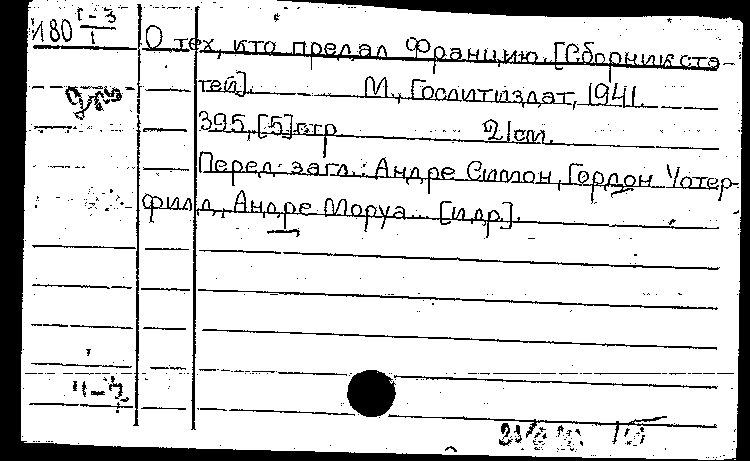 И80 Г-3/1
О тех, кто предал Францию. [Сборник ста-
тей]. М., Гослитиздат, 1941.
395, [5] стр. 21см.
Перед загл.: Андре Симон, Гордон Уотер-
филд, Андре Моруа... [и др].